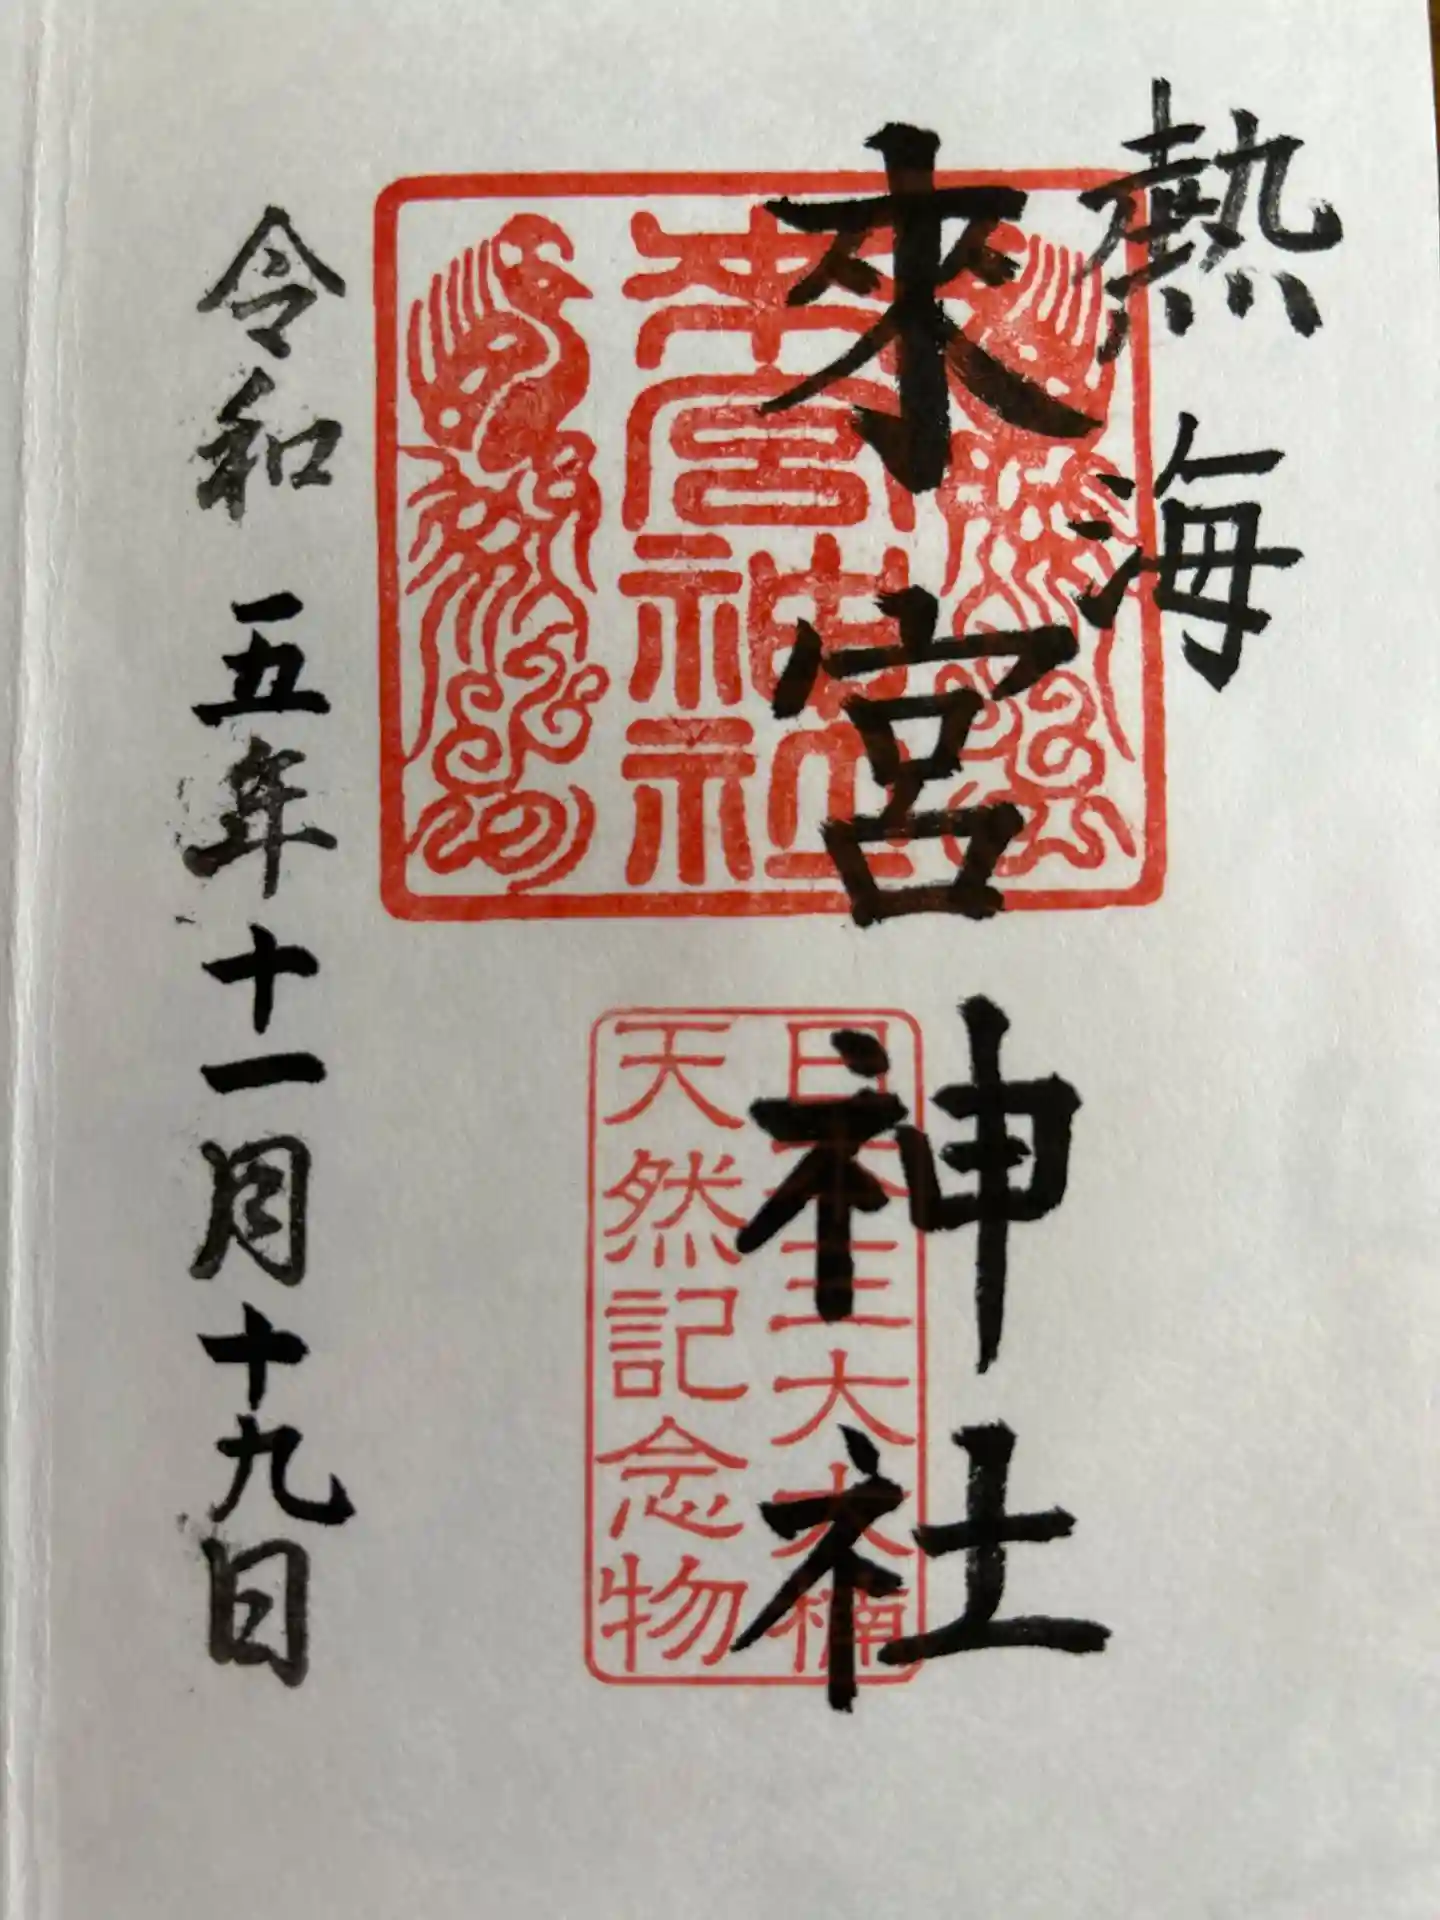 熱海
來宮神社
來宮神社
日本三大大楠
天然記念物
令和五年十一月十九日